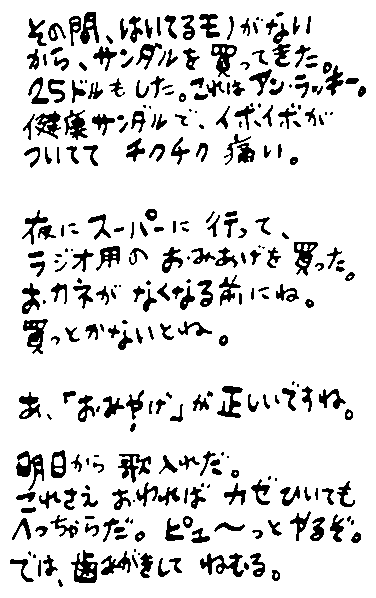 その間、はいてるモノがない
から、サンダルを買ってきた。
25ドルもした。これはアン・ラッキー。
健康サンダルで、イボイボが
ついてて チクチク 痛い。
夜に スーパーに 行って、
ラジオ用の おみあげを 買った。
おカネが なくなる前にね。
買っとかないとね。
あ、「おみやげ」が正しいですね。
明日から 歌入れだ。
これさえ おわれば カゼひいても
へっちゃらだ。ピュ〜っと やるぞ。
では、歯みがきして ねむる。